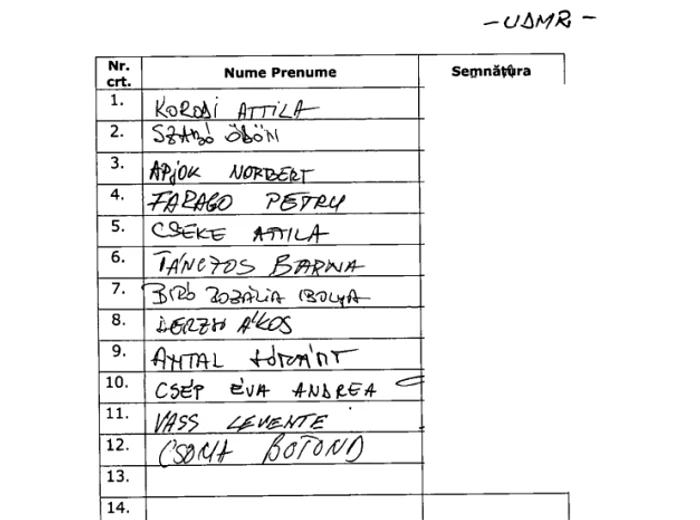 - UDMR -
Nr. crt. Nume Prenume Semnătura
1. KORODI ATTILA
2. SZABÓ ÖDÖN
3. APJOK NORBERT
4. FARAGO PETRU
5. CSEKE ATTILA
6. TÁNCZOS BARNA
7. BIRÓ ROZÁLIA IBOLYA
8. DERZSI ÁKOS
9. ANTAL LÓRÁNT
10. CSÉP ÉVA ANDREA
11. VASS LEVENTE
12. CSOMA BOTOND
13.
14.